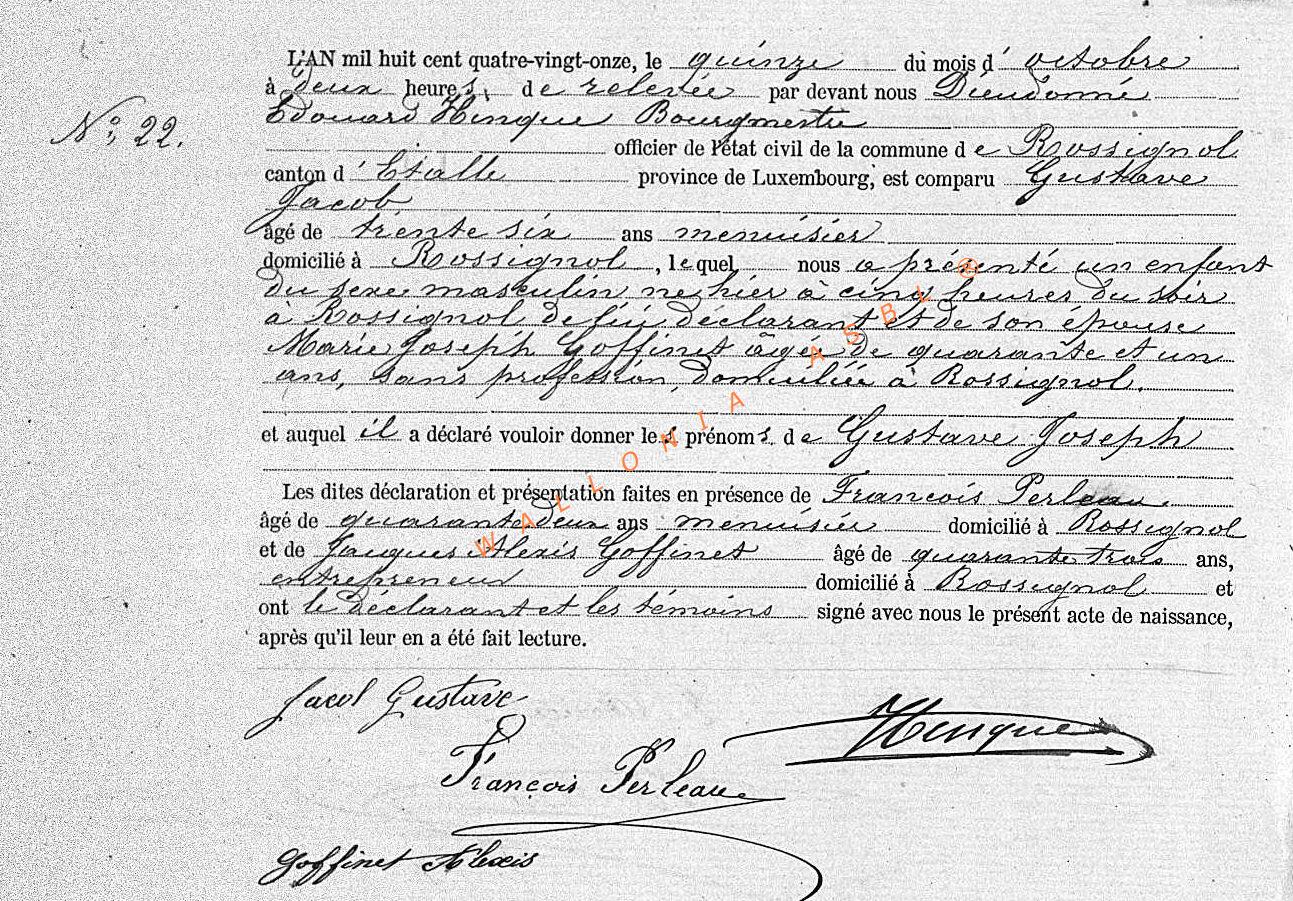 L'AN mil huit cent quatre-vingt-onze, le quinze du mois d' octobre
à deux heures. de relevée par devant nous Dieudonné
Edouard Hinque Bourgmestre
Nº 22.
officier de l'état civil de la commune de Rossignol
canton d' Etalle province de Luxembourg, est comparu Gustave
Jacob
âgé de trente six ans menuisier
domicilié à Rossignol, lequel nous a présenté un enfant
du sexe masculin né hier à cinq heures du soir
à Rossignol de lui déclarant et de son épouse
Marie Joseph Goffinet âgée de quarante et un
ans, sans profession, domiciliée à Rossignol.
et auquel il a déclaré vouloir donner les prénoms de Gustave Joseph
Les dites déclaration et présentation faites en présence de François Perleau
âgé de quarante deux ans menuisier domicilié à Rossignol
et de Jacques Alexis Goffinet âgé de quarante trois ans,
entrepreneur domicilié à Rossignol et
ont le déclarant et les témoins signé avec nous le présent acte de naissance,
après qu'il leur en a été fait lecture.
Jacob Gustave
Hinque
François Perleau
Goffinet Alexis
WALLONIA ASBL ®